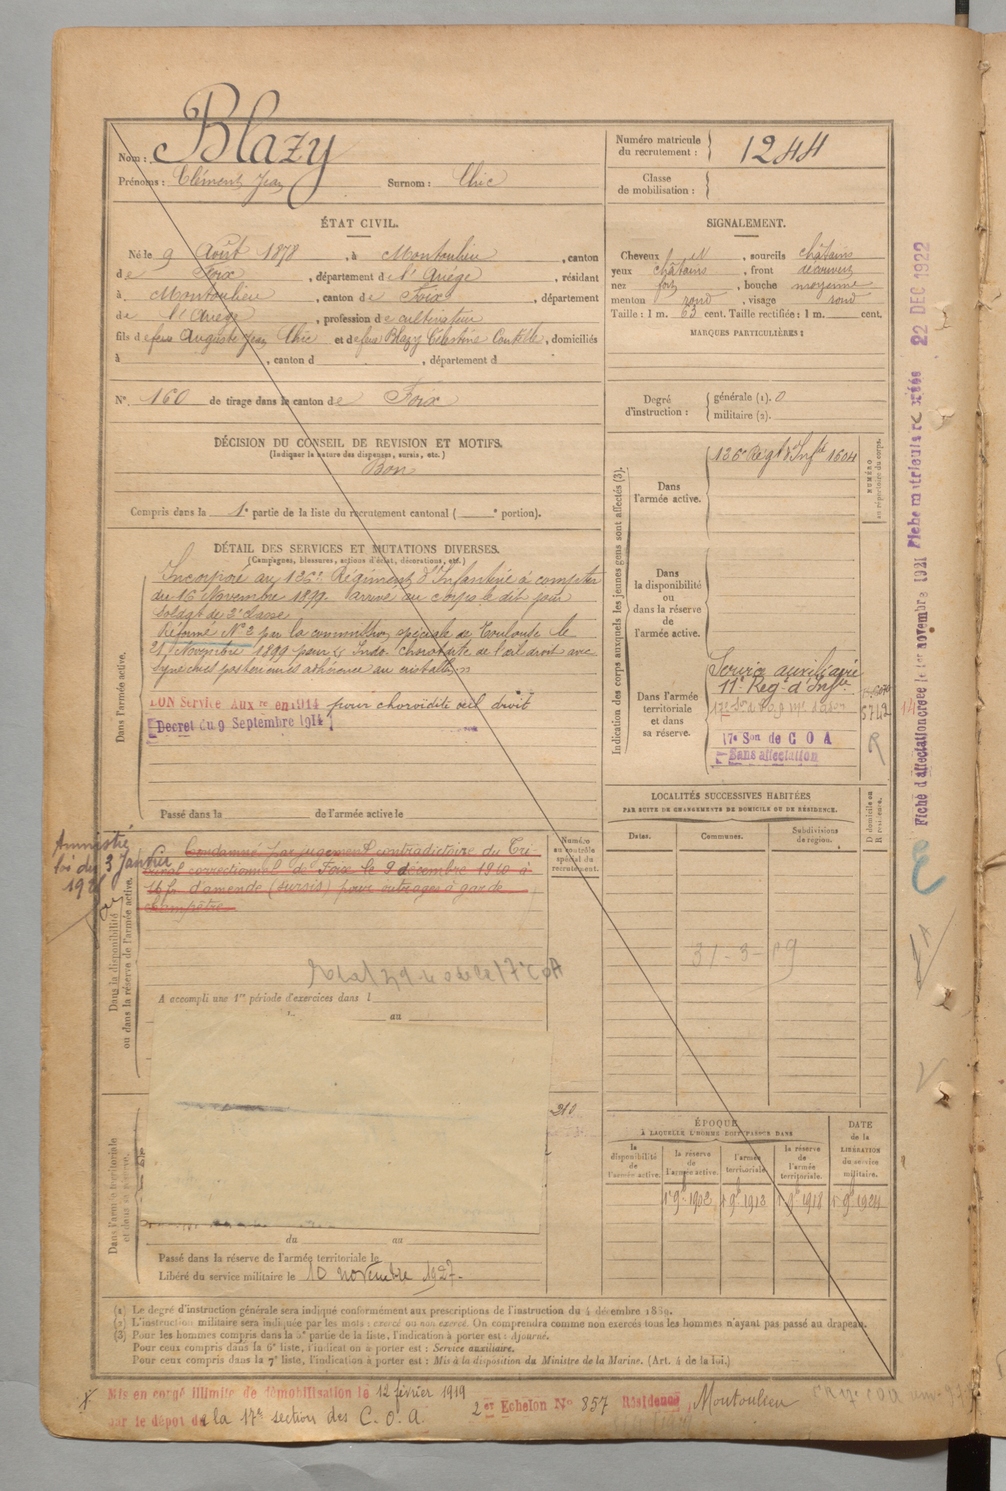 Nom : Blazy
Prénoms : Clément Jean Surnom : Chic
Numéro matricule du recrutement : 1244
Classe de mobilisation :
ÉTAT CIVIL.
Né le 9 Août 1878, à Montoulieu, canton
de Foix, département de l'Ariège, résidant
à Montoulieu, canton de Foix, département
de l'Ariège, profession de cultivateur
fils de feu Auguste Jean Chic et de feue Blazy Célestine, domiciliés
à , canton d , département d
N° 160 de tirage dans le canton de Foix
SIGNALEMENT.
Cheveux et, sourcils châtains
yeux châtains, front découvert
nez fort, bouche moyenne
menton rond, visage rond
Taille : 1 m. 63 cent. Taille rectifiée : 1 m. cent.
MARQUES PARTICULIÈRES :
Degré d'instruction : générale (1). 0
militaire (2).
DÉCISION DU CONSEIL DE REVISION ET MOTIFS.
(Indiquer la nature des dispenses, sursis, etc.)
Bon
Compris dans la 1e partie de la liste du recrutement cantonal ( e portion).
DÉTAIL DES SERVICES ET MUTATIONS DIVERSES.
(Campagnes, blessures, actions d'éclat, décorations, etc.)
Dans l'armée active.
Incorporé au 126e Régiment d'Infanterie à compter
du 16 Novembre 1899. Arrivé au corps le dit jour
Soldat de 2e classe.
Réformé N° 2 par la commission spéciale de Toulouse le
21 Novembre 1899 pour Choroïdite de l'œil droit avec
synéchies postérieures adhérence au cristallin
BON Service Auxre en 1914 pour choroïdite œil droit
Décret du 9 Septembre 1914
Passé dans la de l'armée active le
Indication des corps auxquels les jeunes gens sont affectés (3).
NUMÉRO au répertoire du corps.
Dans l'armée active.
126e Régt d'Infie 1604
Dans la disponibilité ou dans la réserve de l'armée active.
Dans l'armée territoriale et dans sa réserve.
Service auxiliaire
11e Reg. d'Infie
5742
R
17e Son de C O A
Sans affectation
Amnistié
loi du 3 Janvier
Dans la disponibilité ou dans la réserve de l'armée active.
Condamné par jugement contradictoire du Tri-
bunal correctionnel de Foix le 9 décembre 1910 à
16 fr. d'amende (sursis) pour outrages à garde
champêtre
Numéro au contrôle spécial du recrutement.
A accompli une 1re période d'exercices dans l
au
210
Dans l'armée territoriale et dans sa réserve.
du au
Passé dans la réserve de l'armée territoriale le
Libéré du service militaire le 10 novembre 1927.
LOCALITÉS SUCCESSIVES HABITÉES
PAR SUITE DE CHANGEMENTS DE DOMICILE OU DE RÉSIDENCE.
Dates. Communes. Subdivisions de région. D domicile ou R résidence.
ÉPOQUE
À LAQUELLE L'HOMME DOIT PASSER DANS
la disponibilité de l'armée active.
la réserve de l'armée active.
l'armée territoriale.
la réserve de l'armée territoriale.
DATE de la LIBÉRATION du service militaire.
1er 9 1902 1er 9 1913 1er 9 1918 1er 9 1924
(1) Le degré d'instruction générale sera indiqué conformément aux prescriptions de l'instruction du 4 décembre 1889.
(2) L'instruction militaire sera indiquée par les mots : exercé ou non exercé. On comprendra comme non exercés tous les hommes n'ayant pas passé au drapeau.
(3) Pour les hommes compris dans la 5e partie de la liste, l'indication à porter est : Ajourné.
Pour ceux compris dans la 6e liste, l'indication à porter est : Service auxiliaire.
Pour ceux compris dans la 7e liste, l'indication à porter est : Mis à la disposition du Ministre de la Marine. (Art. 4 de la loi.)
Mis en congé illimité de démobilisation le 12 février 1919
par le dépôt de la 17e section des C. O. A. 2er Echelon N° 857 Résidence, Montoulieu
Fiche d'affectation créée le 1er novembre 1921 Fiche matricule 22 DEC 1922